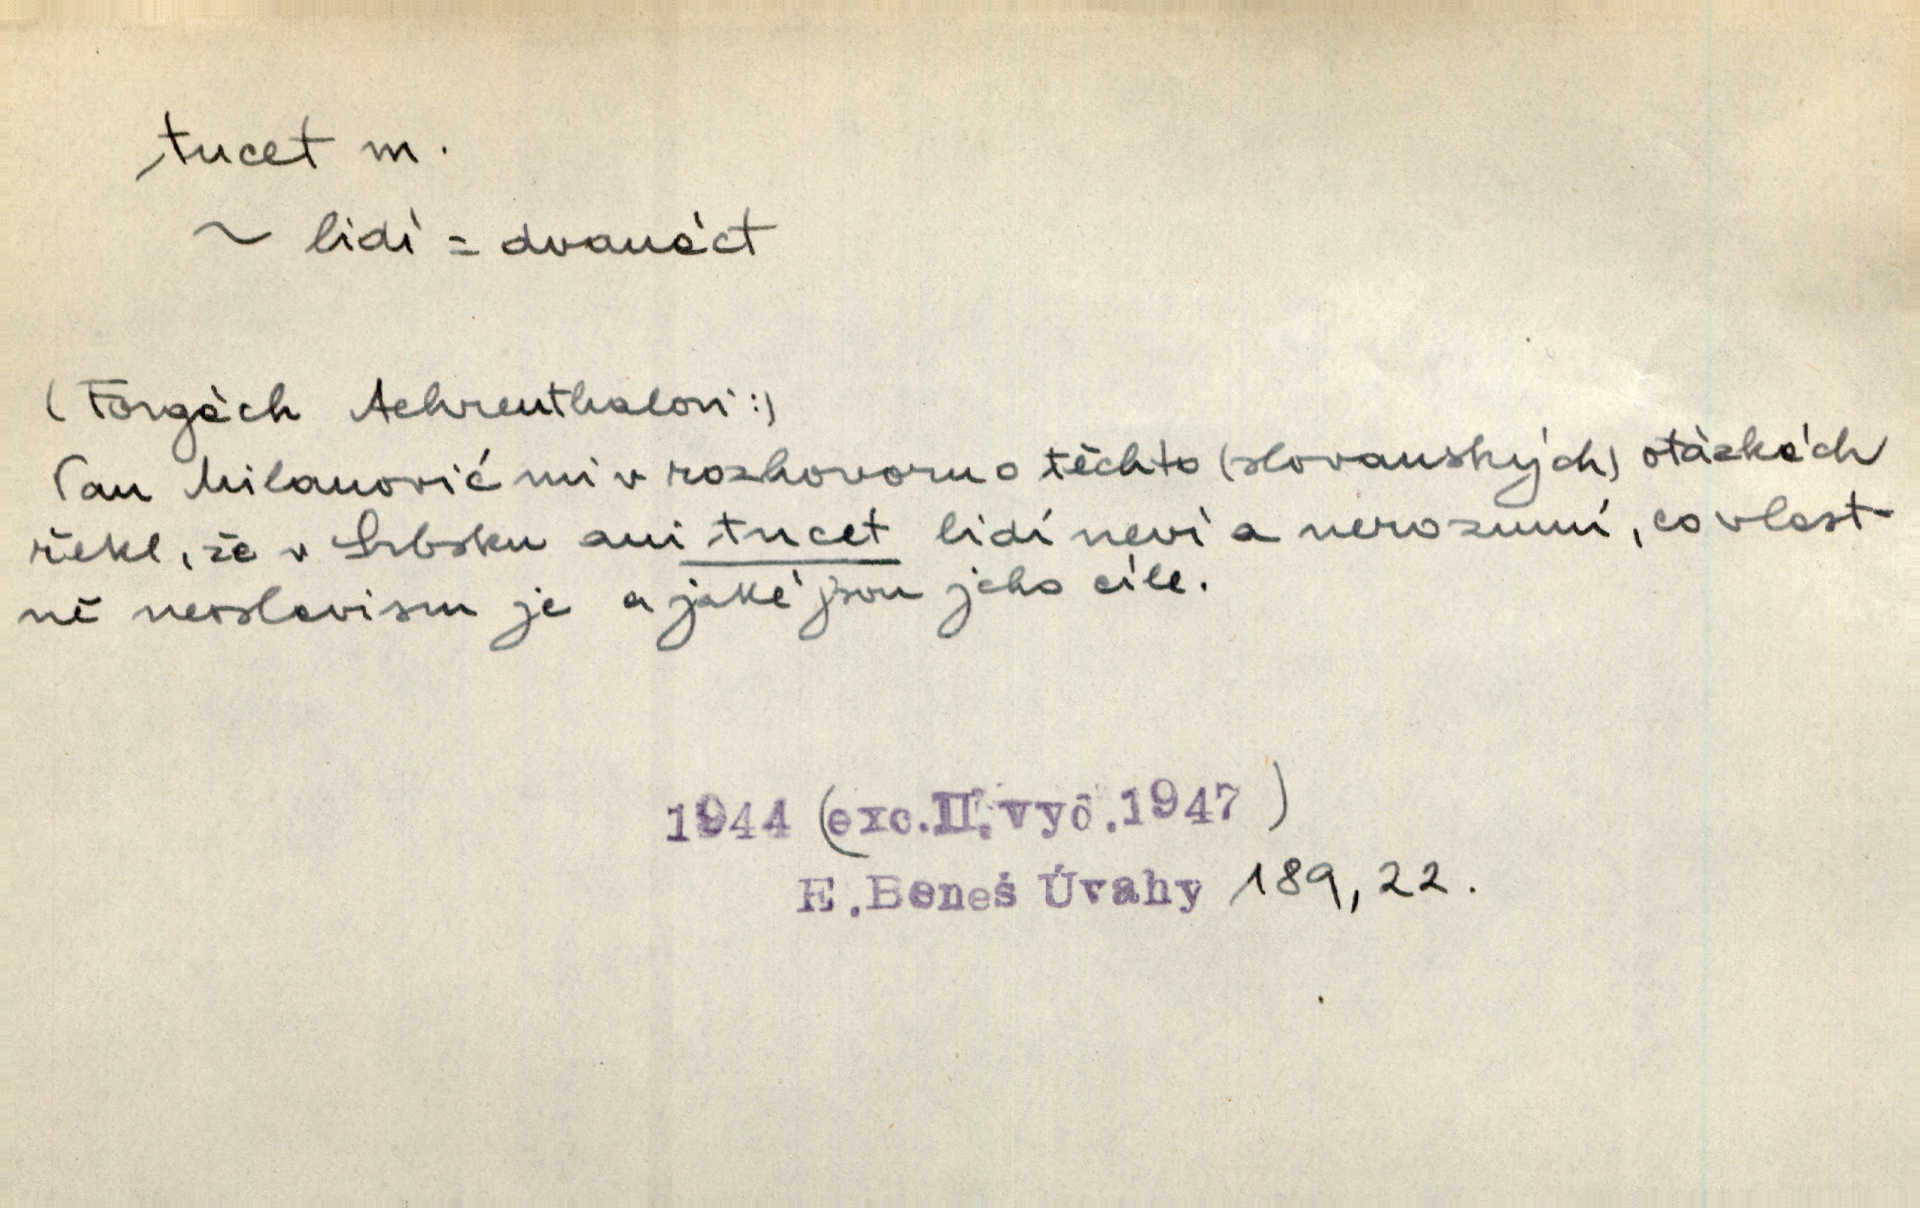 tucet m.
~ lidí = dvanáct
(Forgách Aehrenthalovi:)
Pan Milanović mi v rozhovoru o těchto (slovanských) otázkách
řekl, že v Srbsku ani tucet lidí neví a nerozumí, co vlast-
ně neoslavism je a jaké jsou jeho cíle.
1944 (exc.II.vyd.1947)
E.Beneš Úvahy 189,22.